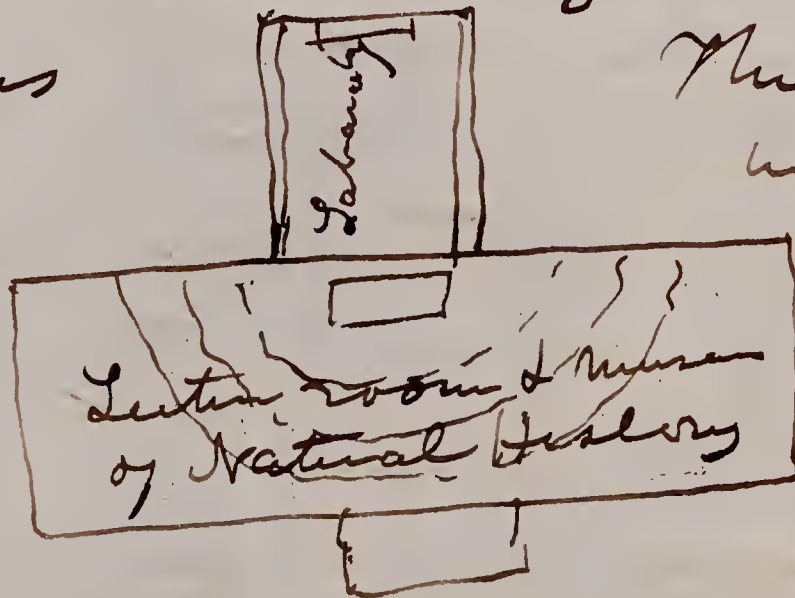 Labaraty
Lectur room & Museum
of Natural History